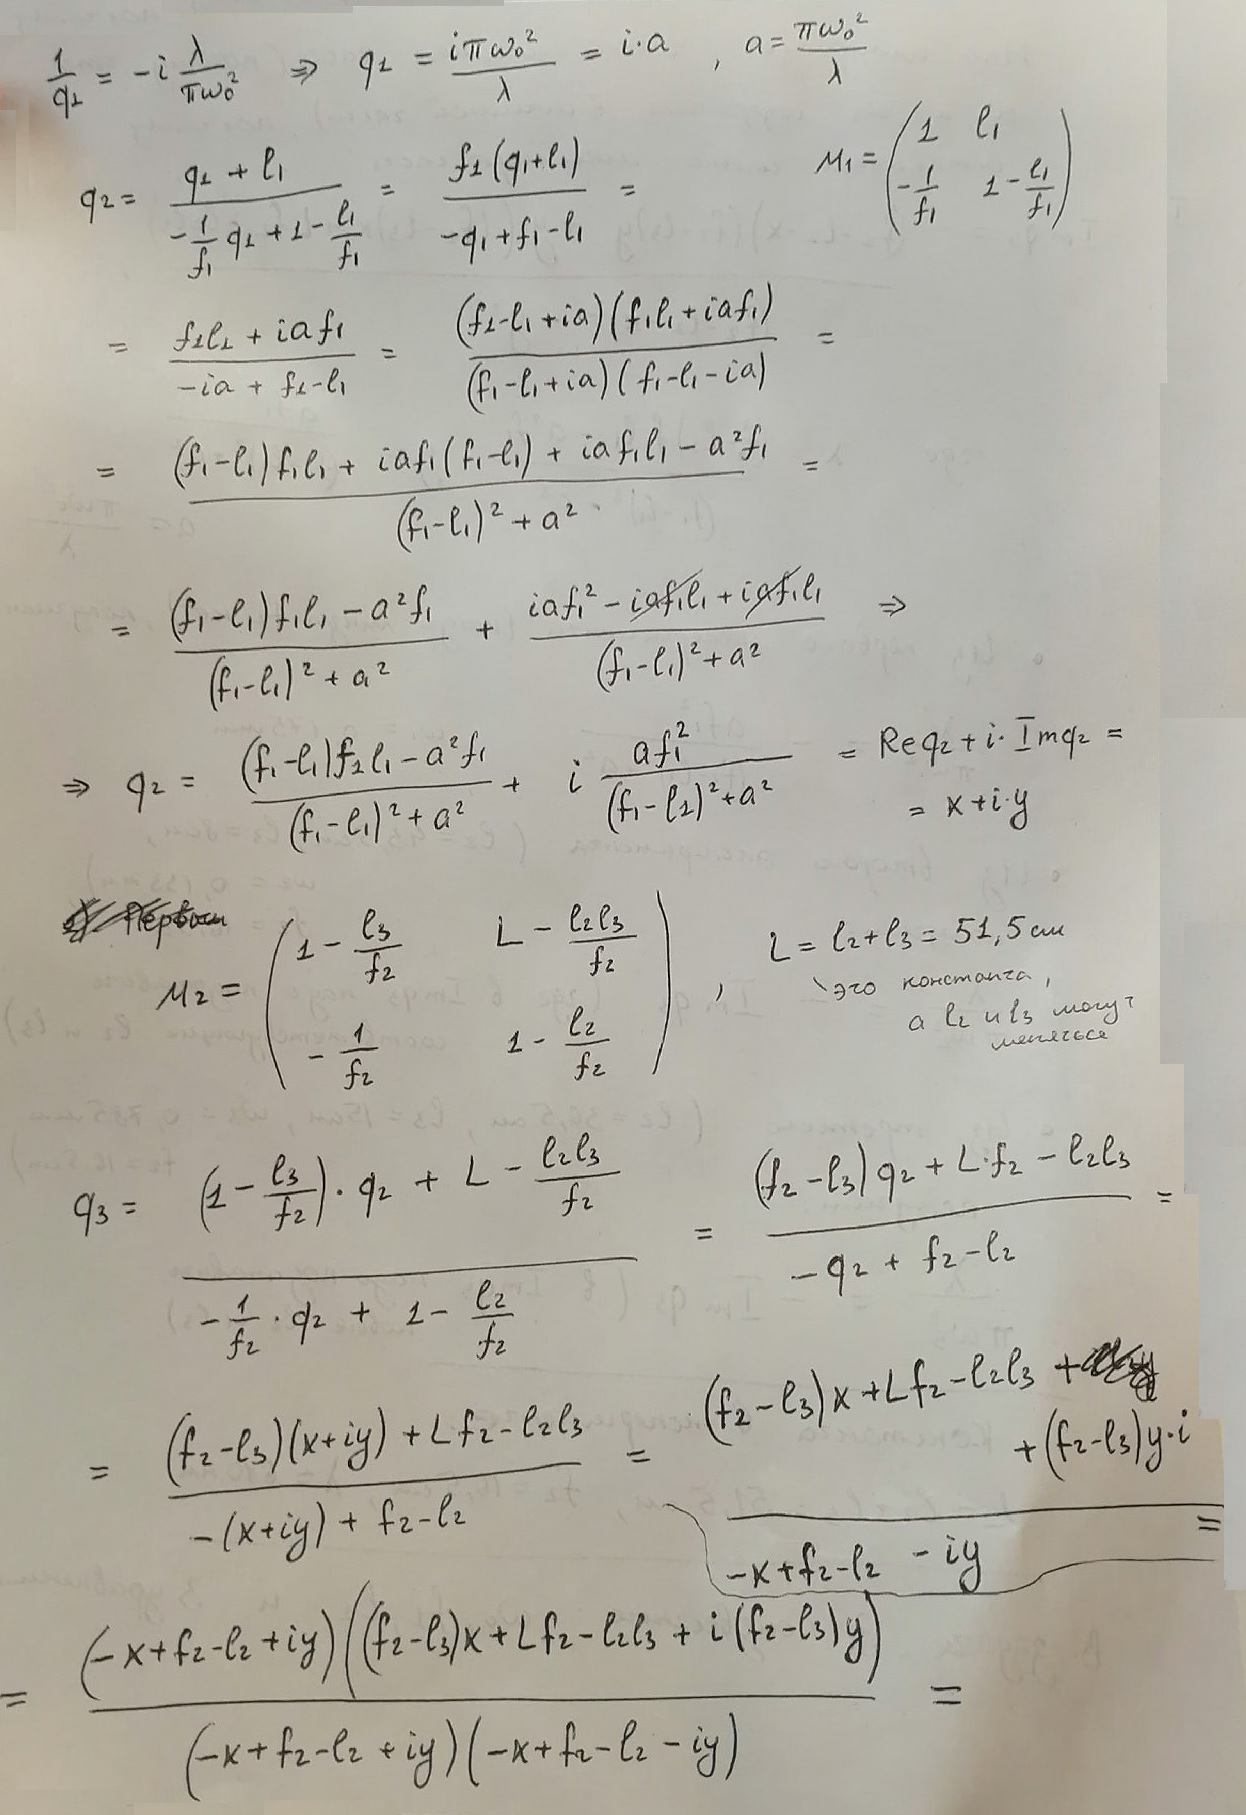 1/q₁ = -i λ/πω₀² ⇒ q₁ = iπω₀²/λ = i·a , a = πω₀²/λ
q₂ = (q₁ + l₁)/(-1/f₁ q₁ + 1 - l₁/f₁) = f₁(q₁+l₁)/(-q₁+f₁-l₁) = M₁ = (1 l₁ -1/f₁ 1-l₁/f₁)
= (f₁l₁ + iaf₁)/(-ia + f₁-l₁) = (f₁-l₁+ia)(f₁l₁+iaf₁)/(f₁-l₁+ia)(f₁-l₁-ia) =
= ((f₁-l₁)f₁l₁ + iaf₁(f₁-l₁) + iaf₁l₁ - a²f₁)/((f₁-l₁)² + a²) =
= ((f₁-l₁)f₁l₁ - a²f₁)/((f₁-l₁)² + a²) + (iaf₁² - iaf₁l₁ + iaf₁l₁)/((f₁-l₁)² + a²) ⇒
⇒ q₂ = ((f₁-l₁)f₁l₁ - a²f₁)/((f₁-l₁)² + a²) + i af₁²/((f₁-l₁)²+a²) = Req₂ + i·Imq₂ =
= x+i·y
M₂ = (1 - l₃/f₂ L - l₂l₃/f₂ -1/f₂ 1 - l₂/f₂) , L = l₂+l₃ = 51,5 см
это константа,
а l₂ и l₃ могут
меняться
q₃ = ((1 - l₃/f₂)·q₂ + L - l₂l₃/f₂)/(-1/f₂·q₂ + 1 - l₂/f₂) = ((f₂-l₃)q₂ + L·f₂ - l₂l₃)/(-q₂ + f₂-l₂) =
= ((f₂-l₃)(x+iy) + Lf₂ - l₂l₃)/(-(x+iy) + f₂-l₂) = ((f₂-l₃)x + Lf₂ - l₂l₃ +
+ (f₂-l₃)y·i)/(-x+f₂-l₂ - iy) =
= (-x+f₂-l₂+iy)((f₂-l₃)x+Lf₂-l₂l₃ + i(f₂-l₃)y)/(-x+f₂-l₂+iy)(-x+f₂-l₂-iy) =